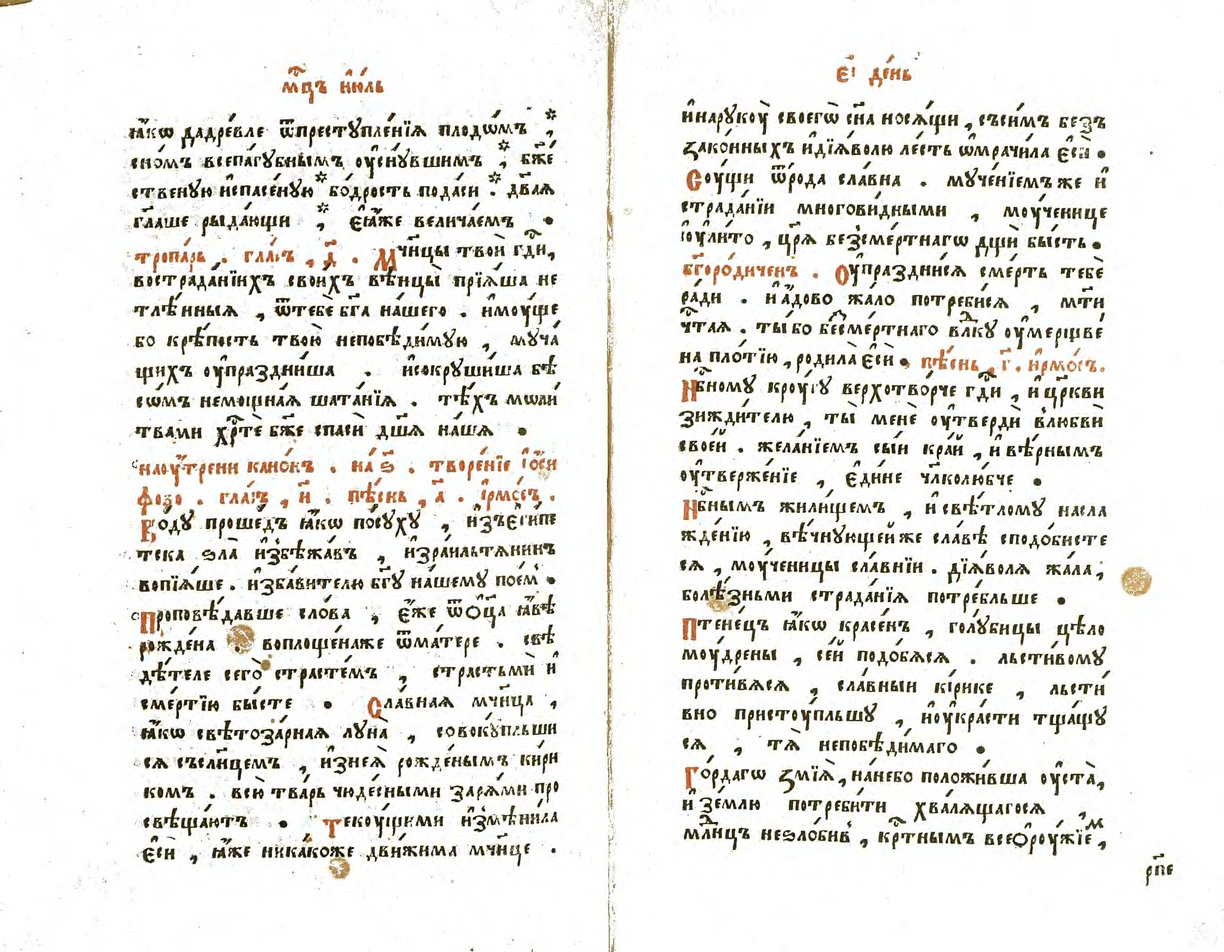 мⷭ҇цъ ию́ль
ꙗ҆́кѡ дадре́вле ѿпреступле́нїѧ плодѡ́мъ *,
сно́мъ всепа́губнымъ оу҆сну́вшимъ *, бж҃е
ственую и҆спасе́ную * бо́дрость пода́си *. двⷣаѧ
гл҃аше рыда́ющи *, ю҆́же велича́емъ .
тропа́рь . гла́съ , д҃ . Мч҃нцы твоѝ гдⷭ҇и,
востраданїихъ свои́хъ вѣнцы̀ прїѧ́ша не
тлѣ́нныѧ , ѿтебѐ бг҃а на́шего . и҆моу́ще
бо крѣ́пость твою̀ непобѣди́мую , муча́
щихъ оу҆праздни́ша . и҆сокруши́ша бѣ
сѡ́мъ немощна́ѧ шата́нїѧ . тѣ́хъ мѡли
твами хрⷭ҇тѐ бж҃е спасѝ дш҃ѧ нашѧ .
наоу҆́трени кано́нъ . на́ ѕ҃ . творе́нїе і҆о́си
фово . гла́съ , и҃ . пѣ́снь , а҃ . і҆рмо́съ .
Во́ду проше́дъ ꙗ҆́кѡ по́суху , и҆зъе҆ги́пе
тска ѕла̀ и҆збѣжа́въ , и҆зраильтѧнинъ
вопїѧ́ше . и҆збави́телю бг҃у на́шему пое́м .
Проповѣ́давше сло́ва , є҆́же ѿѻц҃а ꙗ҆́вѣ
рожде́на . воплоще́наже ѿма́тере . свѣ
дѣ́теле сего̀ страсте́мъ , страстьмѝ и҆
сме́ртїю бы́сте . Сла́внаѧ мч҃нца ,
ꙗ҆́кѡ свѣтоза́рнаѧ луна̀ , совоку́пльши
сѧ съсл҃нцемъ , и҆знеѧ̀ рожде́нымъ ки́ри
комъ . всю̀ тва́рь чюде́сными зарѧ́ми про
свѣща́ютъ . Текоу́щими и҆змѣни́ла
є҆сѝ , ꙗ҆́же ника́коже дви́жима мч҃нце .
є҃і де́нь
и҆нарукоу̀ своегѡ̀ сн҃а носѧ́щи , съси́мъ безъ
зако́нныхъ и҆дїѧ́волю ле́сть ѡ҆мрачи́ла є҆сѝ .
Соу́щи ѿро́да сла́вна . муче́нїемъже и҆
страда́нїи многови́дными , моу́ченице
і҆оули́то , цр҃ѧ безсме́ртнагѡ дщѝ бы́сть .
бг҃оро́диченъ . Оу҆праздни́сѧ сме́рть тебѐ
ра́ди . и҆а҆́дово жа́ло потреби́сѧ , мт҃и
чтⷭ҇аѧ . ты́ бо бесме́ртнаго влⷣку оу҆мерщве́
на пло́тїю , родила̀ є҆сѝ . пѣ́снь , г҃ . и҆рмо́съ .
Нбⷭ҇ному кроу́гу верхотво́рче гдⷭ҇и , и҆ цр҃кви
зижди́телю , ты̀ менѐ оу҆твердѝ влюбвѝ
свое́й . жела́нїемъ сы́и кра́и , и҆ вѣ́рнымъ
оу҆твержде́нїе , є҆ди́не чл҃колю́бче .
Нбⷭ҇нымъ жили́щемъ , и҆ свѣ́тлому насла
жде́нїю , вѣ́чнующейже сла́вѣ сподо́бисте
сѧ , моу́ченицы сла́внїи . дїѧ́волѧ жа́ла ,
болѣ́зньми страда́нїѧ потре́бльше .
Птене́цъ ꙗ҆́кѡ кра́сенъ , голу́бицы цѣло
моу́дрены , се́й подо́бѧсѧ . льсти́вому
проти́вѧсѧ , сла́вныи кі́рике , льсти́
вно пристоу́пльшу , и҆оу҆кра́сти тща́щу
сѧ , тѧ̀ непобѣди́маго .
Го́рдагѡ змі́ѧ , на́небо положи́вша оу҆ста̀ ,
и҆ зе́млю потреби́ти хвалѧ́щагосѧ
млⷣнцъ неѕло́бив , крⷭ҇тнымъ всеѻроу́жїемъ ,
рп҃е